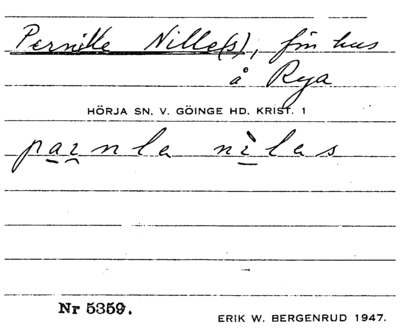 Pernille Nille(s), fm hus
å Rya
HÖRJA SN. V. GÖINGE HD. KRIST. 1
paɪnla nìlas
Nr 5359.
ERIK W. BERGENRUD 1947.